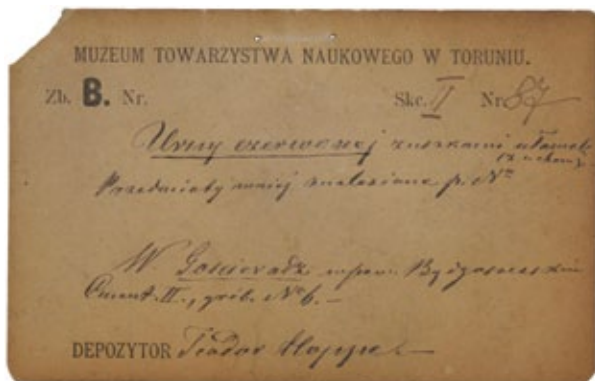 MUZEUM TOWARZYSTWA NAUKOWEGO W TORUNIU.
Zb. B. Nr. Skc. II Nr. 87
Urny czerwonej z uszkami ułamek
(z uchem).
Przedmioty w niej znalezione p. No
W. Gościeradz w pow. Bydgoskim
Cment. II., grób. No 6. –
DEPOZYTOR Teodor Hoppe